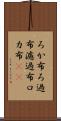 ろか布ろ過
布濾過布ロ
カ布